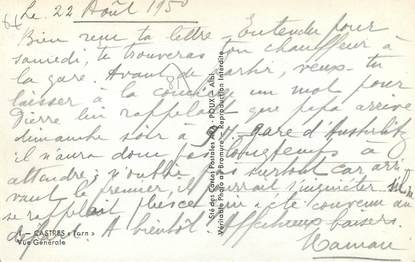 Le, 22 Août 1950
Bien reçu ta lettre. Entendu pour
samedi, tu trouveras ton chauffeur à
la gare. Avant de partir, veux-tu
laisser à la concierge un mot pour
Pierre lui rappelant que papa arrive
dimanche soir à gare d'Austerlitz
il n'aura donc pas longtemps à
attendre; n'oublie pas surtout car arri
vant le premier, il pourrait s'inquiéter s'il ne
se rappelait plus ce qui a été convenu au
départ. A bientôt. Affectueux baisers.
Maman
1 - CASTRES « Tarn »
Vue Générale
Sté des Cartes Postales POUX - Albi
Véritable Photo au Bromure - Reproduction Interdite